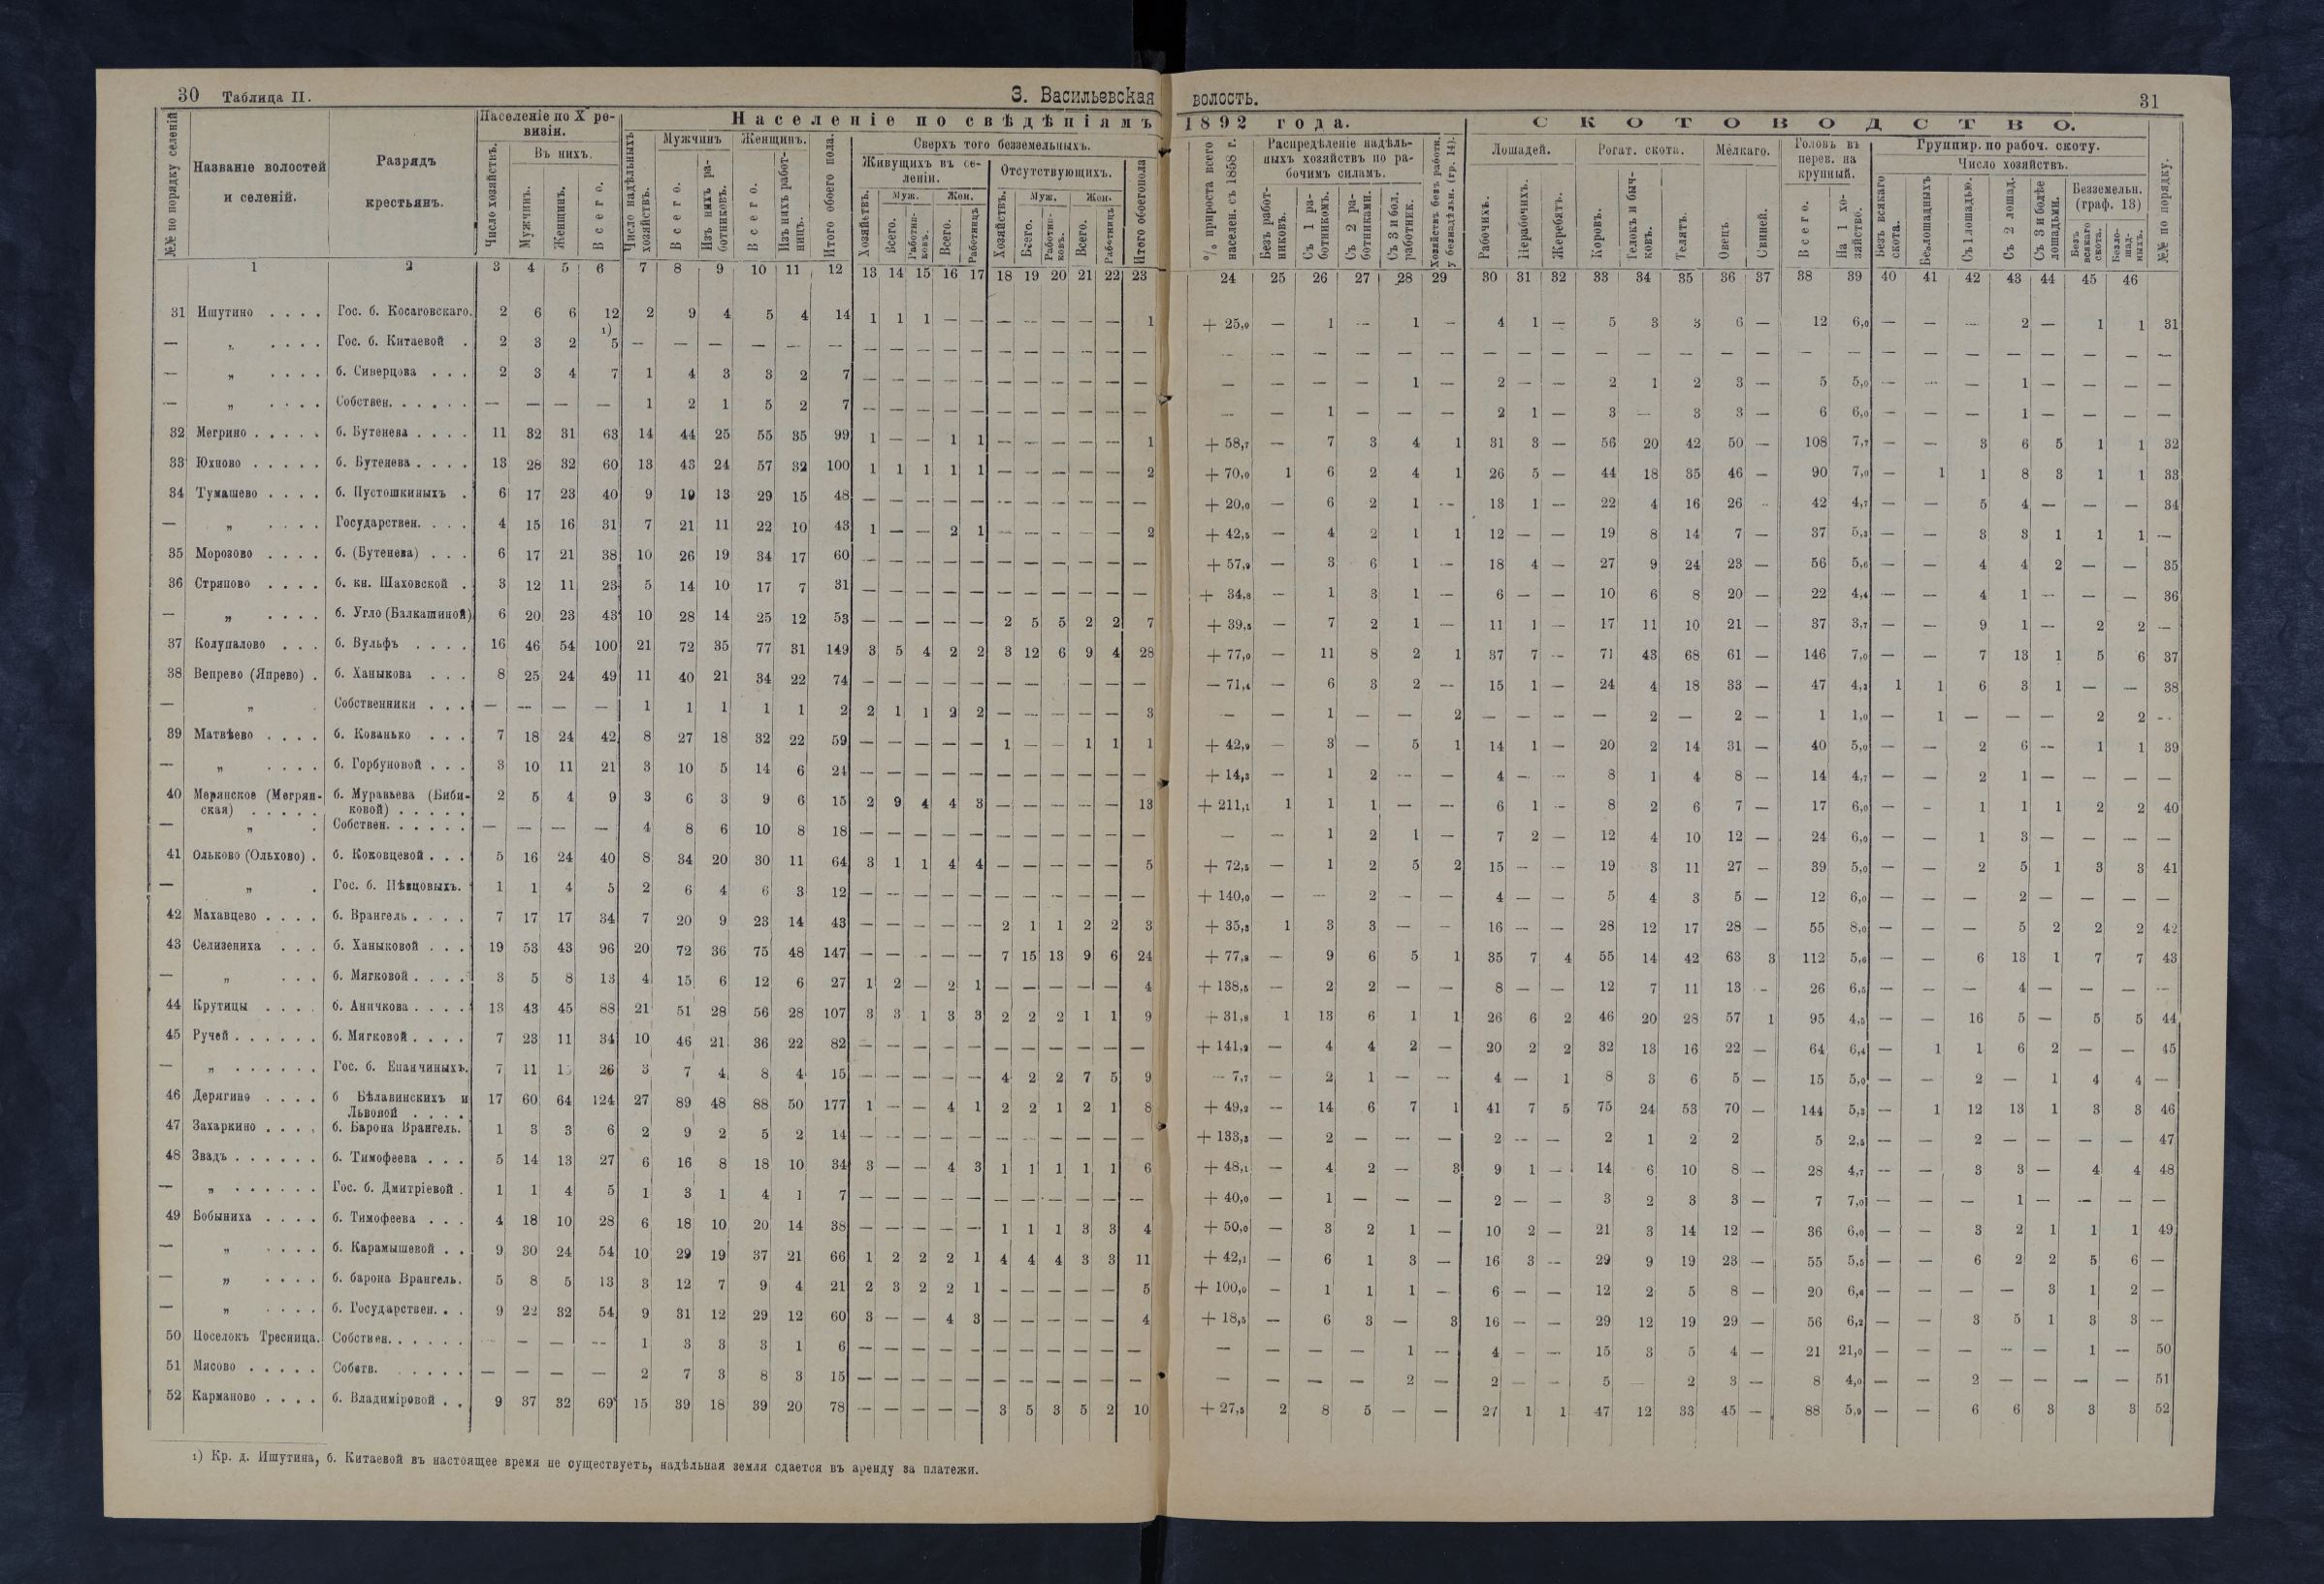 30 Таблица II.
3. Васильевская волость.
31
№№ по порядку селеній
Названіе волостей и селеній.
Разрядъ крестьянъ.
Населеніе по X ревизіи.
Число хозяйствъ.
Въ нихъ.
Мужчинъ.
Женщинъ.
Всего.
Населеніе по свѣдѣніямъ 1892 года.
Число надѣльныхъ хозяйствъ.
Мужчинъ
Всего.
Изъ нихъ работниковъ.
Женщинъ.
Всего.
Изъ нихъ работницъ.
Итого обоего пола.
Сверхъ того безземельныхъ.
Живущихъ въ селеніи.
Хозяйствъ.
Муж.
Всего.
Работниковъ.
Жен.
Всего.
Работницъ
Отсутствующихъ.
Хозяйствъ.
Муж.
Всего.
Работниковъ.
Жен.
Всего.
Работницъ
Итого обоего пола
% прироста всего населен. съ 1858 г.
Распредѣленіе надѣльныхъ хозяйствъ по рабочимъ силамъ.
Безъ работниковъ.
Съ 1 работникомъ.
Съ 2 работниками.
Съ 3 и бол. работник.
Хозяйствъ безъ работн. у безнадѣльн. (гр. 14).
СКОТОВОДСТВО.
Лошадей.
Рабочихъ.
Нерабочихъ.
Жеребятъ.
Рогат. скота.
Коровъ.
Телокъ и бычковъ.
Телятъ.
Мелкаго.
Овецъ.
Свиней.
Головъ въ перев. на крупный.
Всего.
На 1 хозяйство.
Группир. по рабоч. скоту.
Число хозяйствъ.
Безъ всякаго скота.
Безлошадныхъ
Съ 1 лошадью.
Съ 2 лошад.
Съ 3 и болѣе лошадьми.
Безземельн. (граф. 13)
Безъ всякаго скота.
Безлошадныхъ.
№№ по порядку.
1 2 3 4 5 6 7 8 9 10 11 12 13 14 15 16 17 18 19 20 21 22 23 24 25 26 27 28 29 30 31 32 33 34 35 36 37 38 39 40 41 42 43 44 45 46
31 Ишутино . . . . Гос. б. Косаговскаго. 2 6 6 12 2 9 4 5 4 14 1 1 1 — — — — — — — 1 + 25,0 — 1 — 1 — 4 1 — 5 3 3 6 — 12 6,0 — — — 2 — 1 1 31
— „ . . . . Гос. б. Китаевой . 2 3 2 1) 5 — — — — — — — — — — — — — — — — — — — — — — — — — — — — — — — — — — — — — — — — —
— „ . . . . б. Сиверцова . . . 2 3 4 7 1 4 3 3 2 7 — — — — — — — — — — — — — — — 1 — 2 — — 2 1 2 3 — 5 5,0 — — — 1 — — — —
— „ . . . . Собствен. . . . . . — — — — 1 2 1 5 2 7 — — — — — — — — — — — — — 1 — — — 2 1 — 3 — 3 3 — 6 6,0 — — — 1 — — — —
32 Мегрино . . . . . б. Бутенева . . . . 11 32 31 63 14 44 25 55 35 99 1 — — 1 1 — — — — — 1 + 58,7 — 7 3 4 1 31 3 — 56 20 42 50 — 108 7,7 — — 3 6 5 1 1 32
33 Юхново . . . . . б. Бутенева . . . . 13 28 32 60 13 43 24 57 32 100 1 1 1 1 1 — — — — — 2 + 70,0 1 6 2 4 1 26 5 — 44 18 35 46 — 90 7,0 — 1 1 8 3 1 1 33
34 Тумашево . . . . б. Пустошкиныхъ . 6 17 23 40 9 19 13 29 15 48 — — — — — — — — — — — + 20,0 — 6 2 1 — 13 1 — 22 4 16 26 — 42 4,7 — — 5 4 — — — 34
— „ . . . . Государствен. . . . 4 15 16 31 7 21 11 22 10 43 1 — — 2 1 — — — — — 2 + 42,5 — 4 2 1 1 12 — — 19 8 14 7 — 37 5,3 — — 3 3 1 1 1 —
35 Морозово . . . . б. (Бутенева) . . . 6 17 21 38 10 26 19 34 17 60 — — — — — — — — — — — + 57,9 — 3 6 1 — 18 4 — 27 9 24 23 — 56 5,6 — — 4 4 2 — — 35
36 Стряпово . . . . б. кн. Шаховской . 3 12 11 23 5 14 10 17 7 31 — — — — — — — — — — — + 34,8 — 1 3 1 — 6 — — 10 6 8 20 — 22 4,4 — — 4 1 — — — 36
— „ . . . . б. Угло (Балкашиной) 6 20 23 43 10 28 14 25 12 53 — — — — — 2 5 5 2 2 7 + 39,5 — 7 2 1 — 11 1 — 17 11 10 21 — 37 3,7 — — 9 1 — 2 2 —
37 Колупалово . . . б. Вульфъ . . . . 16 46 54 100 21 72 35 77 31 149 3 5 4 2 2 3 12 6 9 4 28 + 77,0 — 11 8 2 1 37 7 — 71 43 68 61 — 146 7,0 — — 7 13 1 5 6 37
38 Вепрево (Япрево) . б. Ханыкова . . . 8 25 24 49 11 40 21 34 22 74 — — — — — — — — — — — — 71,4 — 6 3 2 — 15 1 — 24 4 18 33 — 47 4,3 1 1 6 3 1 — — 38
— „ . Собственники . . . — — — — 1 1 1 1 1 2 2 1 1 2 2 — — — — — 3 — — 1 — — 2 — — — — 2 — 2 — 1 1,0 — 1 — — — 2 2 —
39 Матвѣево . . . . б. Кованько . . . 7 18 24 42 8 27 18 32 22 59 — — — — — 1 — — 1 1 1 + 42,9 — 3 — 5 1 14 1 — 20 2 14 31 — 40 5,0 — — 2 6 — 1 1 39
— „ . . . . б. Горбуновой . . . 3 10 11 21 3 10 5 14 6 24 — — — — — — — — — — — + 14,3 — 1 2 — — 4 — — 8 1 4 8 — 14 4,7 — — 2 1 — — — —
40 Мерянское (Мегрянская) . . . . . б. Муравьева (Бибиковой) . . . . . 2 5 4 9 3 6 3 9 6 15 2 9 4 4 3 — — — — — 13 + 211,1 1 1 1 — — 6 1 — 8 2 6 7 — 17 6,0 — — 1 1 1 2 2 40
— „ . Собствен. . . . . . — — — — 4 8 6 10 8 18 — — — — — — — — — — — — — 1 2 1 — 7 2 — 12 4 10 12 — 24 6,0 — — 1 3 — — — —
41 Ольково (Ольхово) . б. Коковцевой . . . 5 16 24 40 8 34 20 30 11 64 3 1 1 4 4 — — — — — 5 + 72,5 — 1 2 5 2 15 — — 19 3 11 27 — 39 5,0 — — 2 5 1 3 3 41
— „ . Гос. б. Пѣвцовыхъ. 1 1 4 5 2 6 4 6 3 12 — — — — — — — — — — — + 140,0 — — 2 — — 4 — — 5 4 3 5 — 12 6,0 — — — 2 — — — —
42 Махавцево . . . . б. Врангель . . . . 7 17 17 34 7 20 9 23 14 43 — — — — — 2 1 1 2 2 3 + 35,3 1 3 3 — — 16 — — 28 12 17 28 — 55 8,0 — — — 5 2 2 2 42
43 Селизениха . . . б. Ханыковой . . . 19 53 43 96 20 72 36 75 48 147 — — — — — 7 15 13 9 6 24 + 77,8 — 9 6 5 1 35 7 4 55 14 42 63 3 112 5,6 — — 6 13 1 7 7 43
— „ . . . б. Мягковой . . . . 3 5 8 13 4 15 6 12 6 27 1 2 — 2 1 — — — — — 4 + 138,5 — 2 2 — — 8 — — 12 7 11 13 — 26 6,5 — — — 4 — — — —
44 Крутицы . . . . б. Аничкова . . . . 13 43 45 88 21 51 28 56 28 107 3 3 1 3 3 2 2 2 1 1 9 + 31,8 1 13 6 1 1 26 6 2 46 20 28 57 1 95 4,5 — — 16 5 — 5 5 44
45 Ручей . . . . . . б. Мягковой . . . . 7 23 11 34 10 46 21 36 22 82 — — — — — — — — — — — + 141,2 — 4 4 2 — 20 2 2 32 13 16 22 — 64 6,4 — 1 1 6 2 — — 45
— „ . . . . . . Гос. б. Епанчиныхъ. 7 11 26 3 7 4 8 4 15 — — — — — 4 2 2 7 5 9 — 7,7 — 2 1 — — 4 — 1 8 3 6 5 — 15 5,0 — — 2 — 1 4 4 —
46 Дерягино . . . . б Бѣлавинскихъ и Львовой . . . . 17 60 64 124 27 89 48 88 50 177 1 — — 4 1 2 2 1 2 1 8 + 49,2 — 14 6 7 1 41 7 5 75 24 53 70 — 144 5,3 — 1 12 13 1 3 3 46
47 Захаркино . . . . б. Барона Врангель. 1 3 3 6 2 9 2 5 2 14 — — — — — — — — — — — + 133,3 — 2 — — — 2 — — 2 1 2 2 5 2,5 — — 2 — — — — 47
48 Звадъ . . . . . . б. Тимофеева . . . 5 14 13 27 6 16 8 18 10 34 3 — — 4 3 1 1 1 1 1 6 + 48,1 — 4 2 — 3 9 1 — 14 6 10 8 — 28 4,7 — — 3 3 — 4 4 48
— „ . . . . . . Гос. б. Дмитріевой . 1 1 4 5 1 3 1 4 1 7 — — — — — — — — — — — + 40,0 — 1 — — — 2 — — 3 2 3 3 — 7 7,0 — — — 1 — — — —
49 Бобыниха . . . . б. Тимофеева . . . 4 18 10 28 6 18 10 20 14 38 — — — — — 1 1 1 3 3 4 + 50,0 — 3 2 1 — 10 2 — 21 3 14 12 — 36 6,0 — — 3 2 1 1 1 49
— „ . . . . б. Карамышевой . . 9 30 24 54 10 29 19 37 21 66 1 2 2 2 1 4 4 4 3 3 11 + 42,1 — 6 1 3 — 16 3 — 29 9 19 23 — 55 5,5 — — 6 2 2 5 6 —
— „ . . . . б. барона Врангель. 5 8 5 13 3 12 7 9 4 21 2 3 2 2 1 — — — — — 5 + 100,0 — 1 1 1 — 6 — — 12 2 5 8 — 20 6,4 — — — — 3 1 2 —
— „ . . . . б. Государствен. . . 9 22 32 54 9 31 12 29 12 60 3 — — 4 3 — — — — — 4 + 18,5 — 6 3 — 3 16 — — 29 12 19 29 — 56 6,2 — — 3 5 1 3 3 —
50 Поселокъ Тресница. Собствен. . . . . . — — — — 1 3 3 3 1 6 — — — — — — — — — — — — — — — 1 — 4 — — 15 3 5 4 — 21 21,0 — — — — — 1 — 50
51 Мясово . . . . . Собств. . . . . . — — — — 2 7 3 8 3 15 — — — — — — — — — — — — — — — 2 — 2 — — 5 — 2 3 — 8 4,0 — — 2 — — — — 51
52 Карманово . . . . б. Владиміровой . . 9 37 32 69 15 39 18 39 20 78 — — — — — 3 5 3 5 2 10 + 27,5 2 8 5 — — 27 1 1 47 12 33 45 — 88 5,9 — — 6 6 3 3 3 52
1) Кр. д. Ишутина, б. Китаевой въ настоящее время не существуетъ, надѣльная земля сдается въ аренду за платежи.